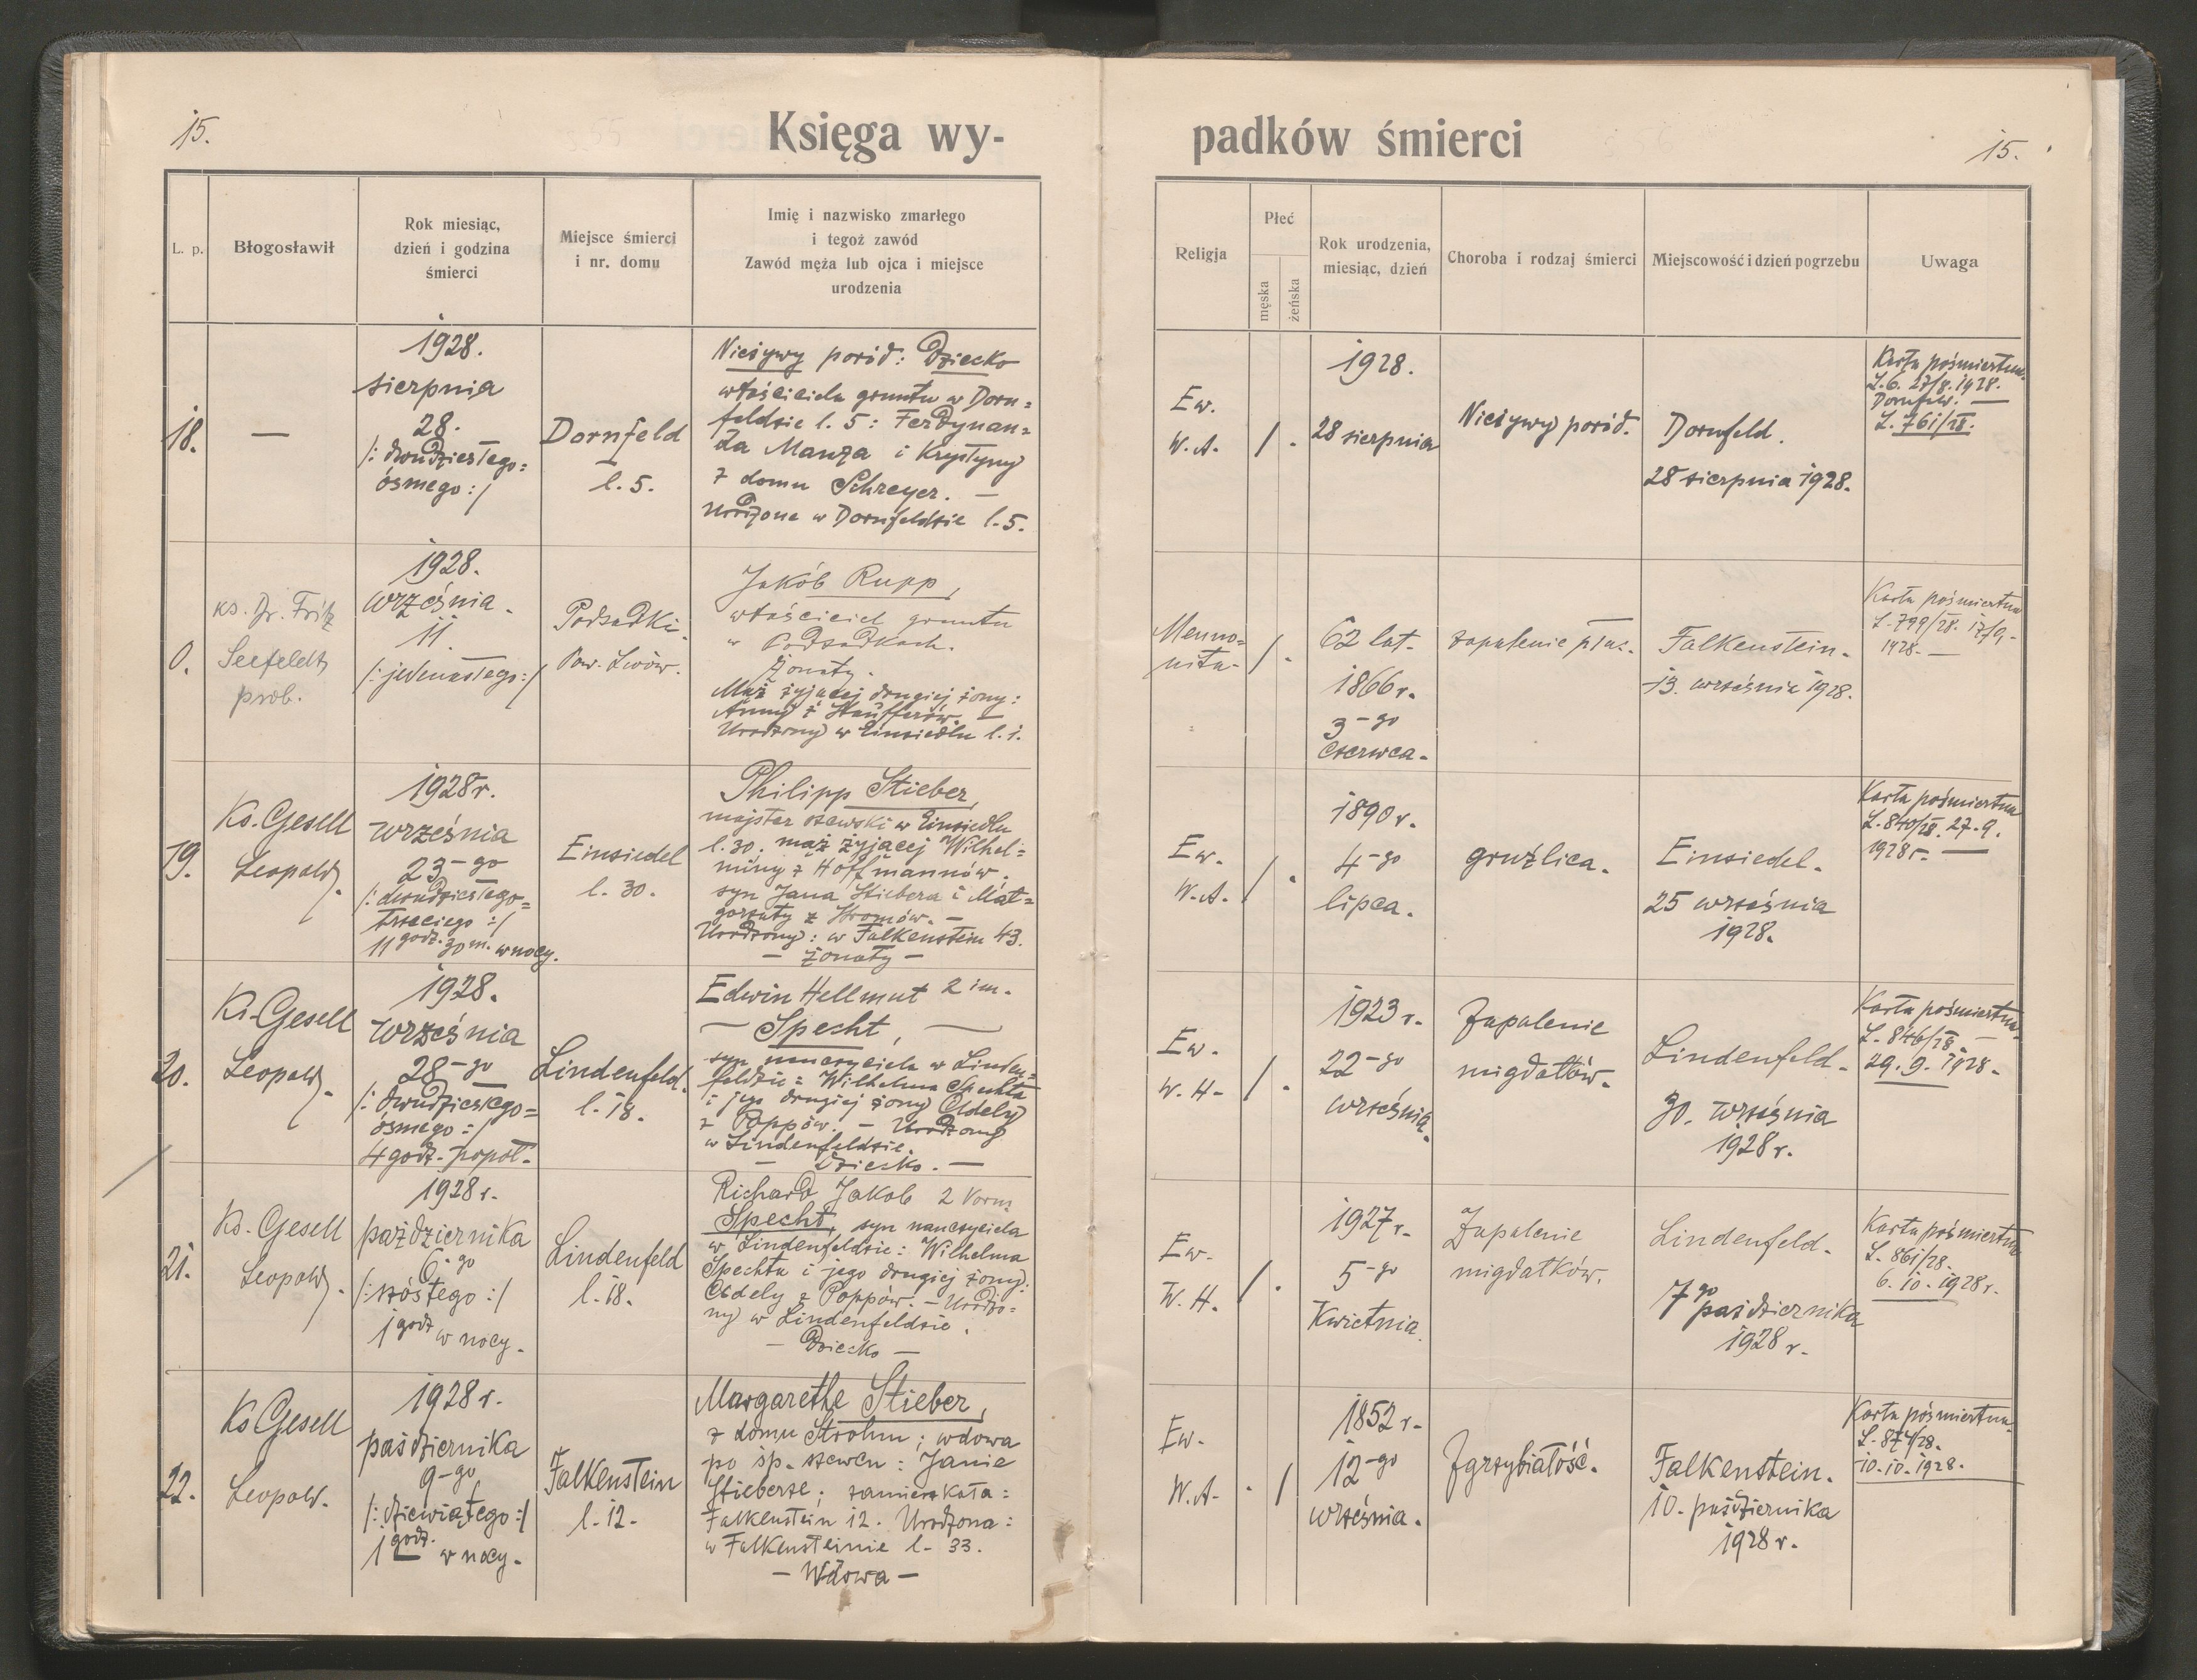 15.
Księga wy-
padków śmierci
15.
L. p.
Błogosławił
Rok miesiąc,
dzień i godzina
śmierci
Miejsce śmierci
i nr. domu
Imię i nazwisko zmarłego
i tegoż zawód
Zawód męża lub ojca i miejsce
urodzenia
Religja
Płeć
męska
żeńska
Rok urodzenia,
miesiąc, dzień
Choroba i rodzaj śmierci
Miejscowość i dzień pogrzebu
Uwaga
18.
—
1928.
sierpnia
28.
/: dwudziestego=
ósmego :/
Dornfeld
l. 5.
Nieżywy poród: Dziecko
właściciela gruntu w Dorn=
feldzie l. 5: Ferdynan=
da Manza i Krystyny
z domu Schreyer. —
urodzone w Dornfeldzie l. 5.
Ew.
W. A.
/ .
1928.
28 sierpnia
Nieżywy poród.
Dornfeld.
28 sierpnia 1928.
Karta pośmiertna
L. 6. 27/8. 1928.
Dornfeld. —
L. 761/28.
0.
ks. Dr. Fritz
Seefeldt
prob.
1928.
września.
11.
/: jedenastego :/
Podsadki.
Pow. Lwów.
Jakób Rupp,
właściciel gruntu
w Podsadkach.
Żonaty.
Mąż żyjącej drugiej żony:
Anny z Staufferów. —
Urodzony w Einsiedlu l. 1.
Menno=
nita-
/ .
62 lat.
1866 r.
3-go
czerwca.
zapalenie płuc.
Falkenstein.
13. września 1928.
Karta pośmiertna
L. 799/28. 12/9.
1928. —
19.
Ks. Gesell
Leopold.
1928 r.
września
23-go
/: dwudziestego=
trzeciego :/
11 godz. 30 m. w nocy.
Einsiedel
l. 30.
Philipp Stieber,
majster szewski w Einsiedlu
l. 30. mąż żyjącej Wilhel=
miny z Hoffmannów.
syn Jana Stiebera i Mał=
gorzaty z Stromów. —
Urodzony: w Falkenstein 43.
— żonaty —
Ew.
W. A.
/ .
1890 r.
4-go
lipca.
gruźlica.
Einsiedel.
25 września
1928.
Karta pośmiertna
L. 840/28. 27. 9.
1928 r. —
20.
Ks. Gesell
Leopold.
1928.
września
28-go
/: dwudziestego=
ósmego :/
4 godz. popoł.
Lindenfeld.
l. 18.
Edwin Hellmut 2 im.
— Specht, —
syn nauczyciela w Linden=
feldzie: Wilhelma Spechta
i jego drugiej żony Adely
z Poppów. — Urodzony
w Lindenfeldzie.
— Dziecko. —
Ew.
W. H.
/ .
1923 r.
22-go
września.
Zapalenie
migdałów.
Lindenfeld.
30. września
1928 r.
Karta pośmiertna
L. 846/28. —
29. 9. 1928.
21.
Ks. Gesell
Leopold.
1928 r.
października
6-go
/: szóstego :/
1 godz w nocy.
Lindenfeld
l. 18.
Richard Jakob 2 Vorn.
Specht, syn nauczyciela
w Lindenfeldzie: Wilhelma
Spechta i jego drugiej żony:
Adely z Poppów. — Urodzo=
ny w Lindenfeldzie.
— Dziecko —
Ew.
W. H.
/ .
1927 r.
5-go
Kwietnia.
Zapalenie
migdałków.
Lindenfeld.
7 go
października
1928 r.
Karta pośmiertna
L. 861/28.
6. 10. 1928 r.
22.
Ks Gesell
Leopold.
1928 r.
października
9-go
/: dziewiątego :/
1 godz. w nocy.
Falkenstein
l. 12.
Margarethe Stieber,
z domu Strohm; wdowa
po śp. szewcu: Janie
Stieberze; zamieszkała:
Falkenstein 12. Urodzona:
w Falkensteinie l. 33.
— Wdowa —
Ew.
W. A.
. /
1852 r.
12-go
września.
Zgrzybiałość.
Falkenstein.
10. października
1928 r.
Karta pośmiertna
L. 874/28.
10. 10. 1928.